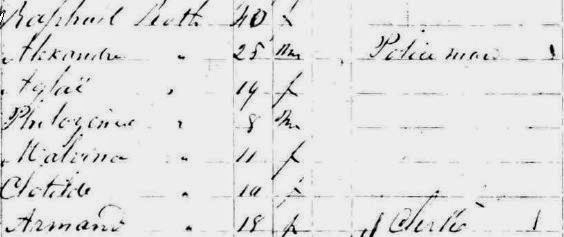 Raphael Roth 40 f
Alexandre " 25 m Policeman 1
Aglaë " 19 f
Philogène " 8 m
Malvina " 11 f
Clotilde " 10 f
Armand " 18 f Clerk 1